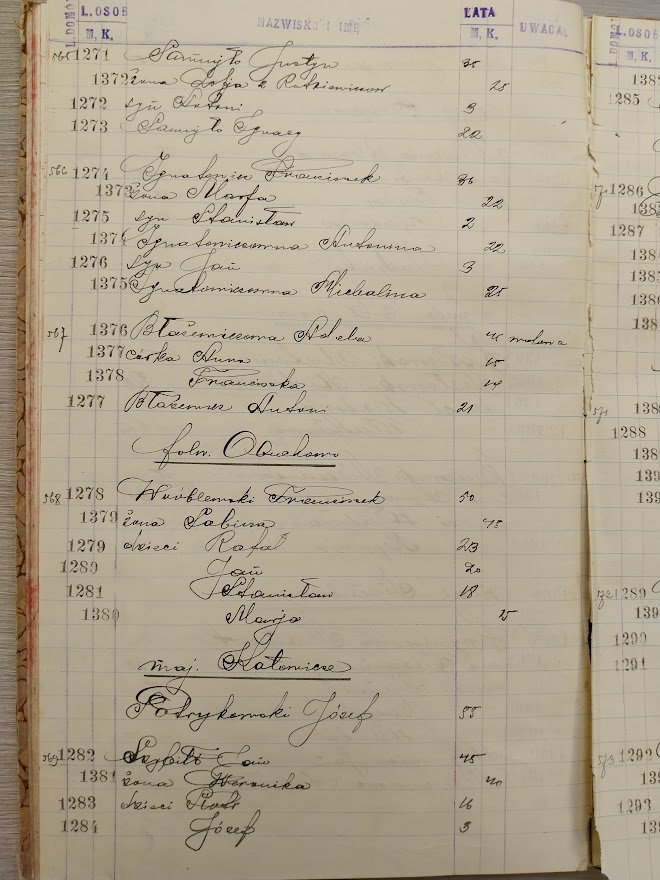 L. DOMO L. OSOB NAZWISKO I IMĘ LATA UWAGA
M, K. M, K.
565 1271 Samujło Justyn 35
1372 żona Zofja z Rutkiewiczów 25
1272 syn Antoni 3
1273 Samujło Ignacy 22
566 1274 Ignatowicz Franciszek 36
1373 żona Marta 22
1275 syn Stanisław 2
1374 Ignatowiczówna Antonina 22
1276 syn Jan 3
1375 Ignatowiczówna Michalina 25
567 1376 Błażewiczowa Adela wdowa
1377 córka Anna 15
1378 Franciszka 14
1277 Błażewicz Antoni 21
folw.
568 1278 Wróblewski Franciszek 50
1379 żona Sabina 45
1279 dzieci Rafał 23
1280 Jan 20
1281 Stanisław 18
1380 Marja 15
maj.
Patrykowski Józef 58
569 1282 Jan 45
1381 żona Weronika 40
1283 dzieci Piotr 16
1284 Józef 3
L. OSOB
M, K.
138
1285
571 1286
138
1287
138
138
138
138
571 138
1288
138
139
139
572 1289
139
1290
1291
573 1292
139
1293
139